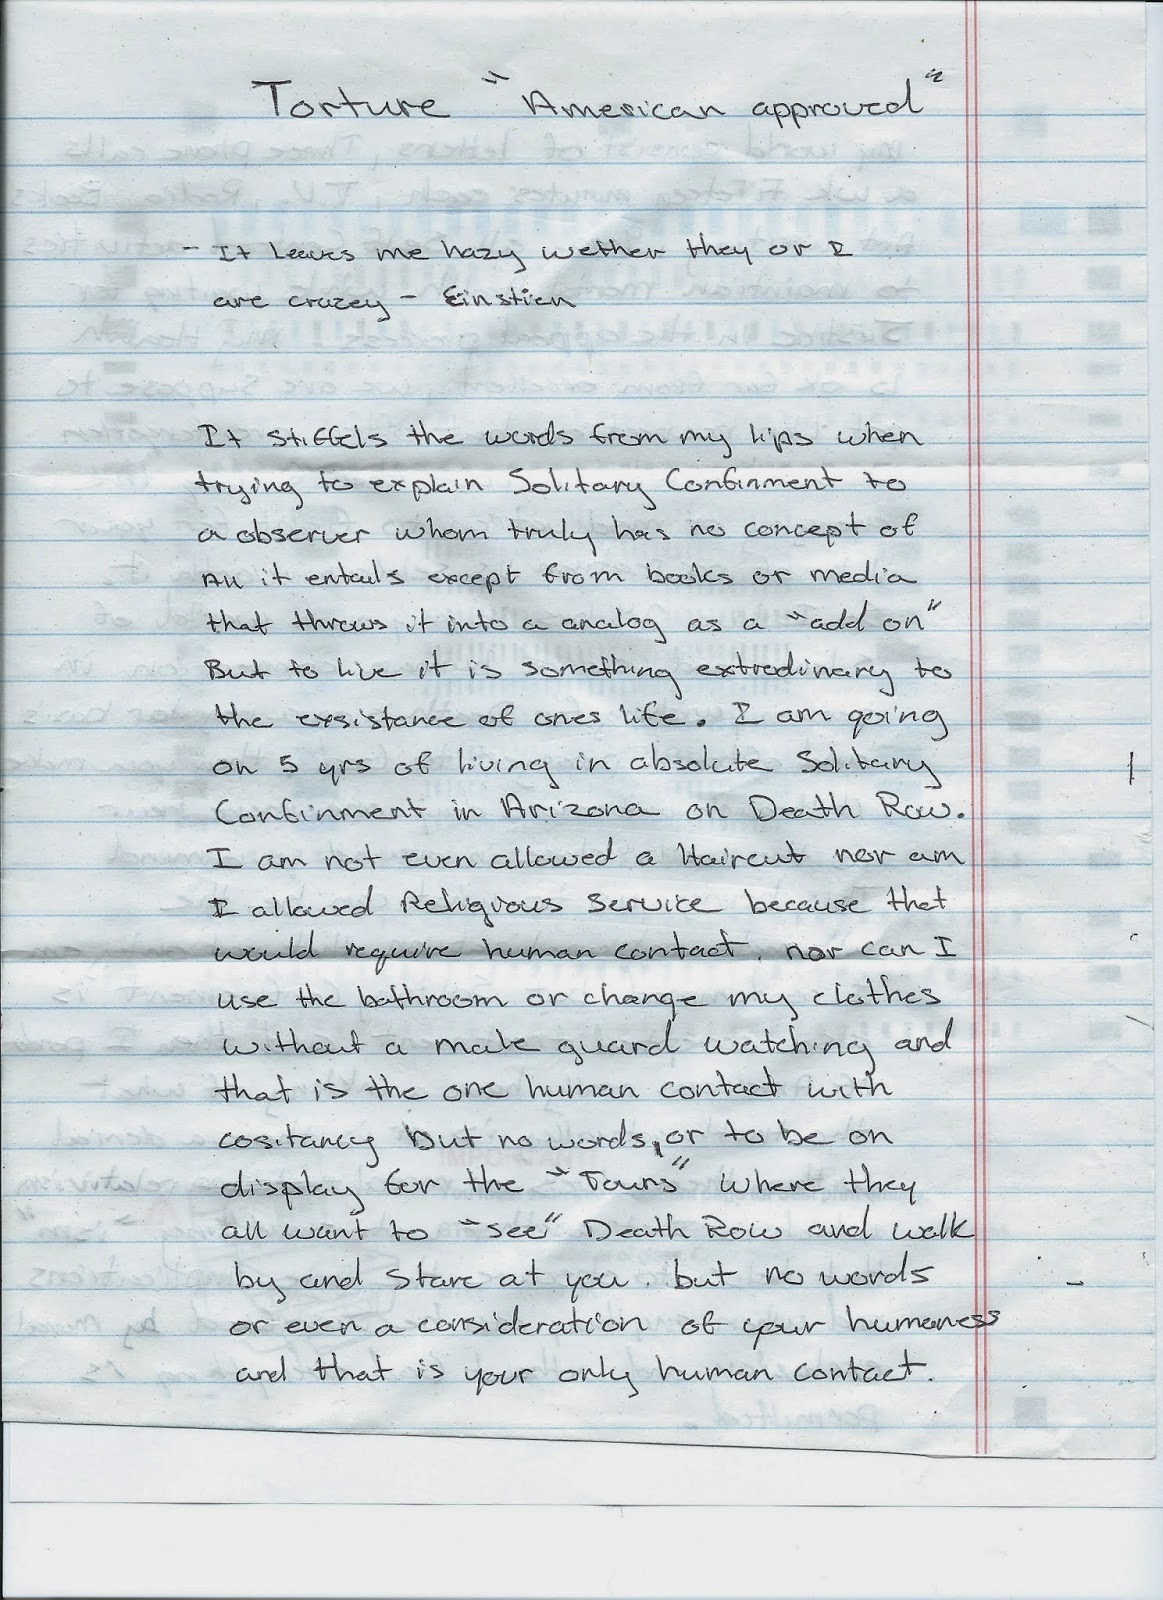 Torture "American approved"
- It Leaves me hazy wether they or I
are crazey - Einstien
It stiffels the words from my lips when
trying to explain Solitary Confinment to
a observer whom truly has no concept of
All it entails except from books or media
that throws it into a analog as a "add on"
But to live it is something extrodinary to
the exsistance of ones life. I am going
on 5 yrs of living in absolute Solitary
Confinment in Arizona on Death Row.
I am not even allowed a Haircut nor am
I allowed Religious Service because that
would require human contact. nor can I
use the bathroom or change my clothes
without a male guard watching and
that is the one human contact with
cositancy but no words, or to be on
display for the "Tours" where they
all want to "see" Death Row and walk
by and stare at you. but no words
or even a consideration of your humaness
and that is your only human contact.